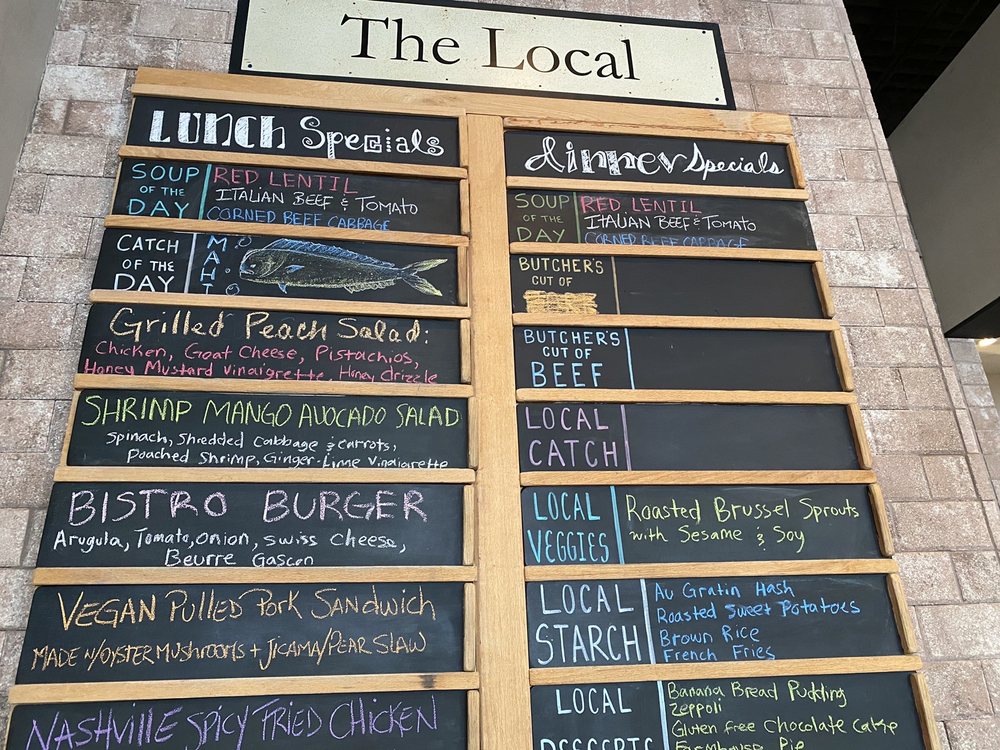 The Local
LUNCH Specials
SOUP
OF THE
DAY
RED LENTIL
ITALIAN BEEF & TOMATO
CORNED BEEF CABBAGE
CATCH
OF THE
DAY
MAHI
Grilled Peach Salad:
Chicken, Goat Cheese, Pistachios,
Honey Mustard Vinaigrette, Honey drizzle
SHRIMP MANGO AVOCADO SALAD
Spinach, Shredded Cabbage & carrots,
Poached Shrimp, Ginger-Lime Vinaigrette
BISTRO BURGER
Arugula, Tomato, onion, swiss cheese,
Beurre Gascon
VEGAN PULLED PORK SANDWICH
MADE W/OYSTER MUSHROOMS + JICAMA/PEAR SLAW
NASHVILLE SPICY FRIED CHICKEN
dinner Specials
SOUP
OF THE
DAY
RED LENTIL
ITALIAN BEEF & TOMATO
CORNED BEEF CABBAGE
BUTCHER'S
CUT OF
BUTCHER'S
CUT OF
BEEF
LOCAL
CATCH
LOCAL
VEGGIES
Roasted Brussel Sprouts
with Sesame & Soy
LOCAL
STARCH
Au Gratin Hash
Roasted Sweet Potatoes
Brown Rice
French Fries
LOCAL
DESSERTS
Banana Bread Pudding
Zeppoli
Gluten free Chocolate Cake
Farmhouse Pie